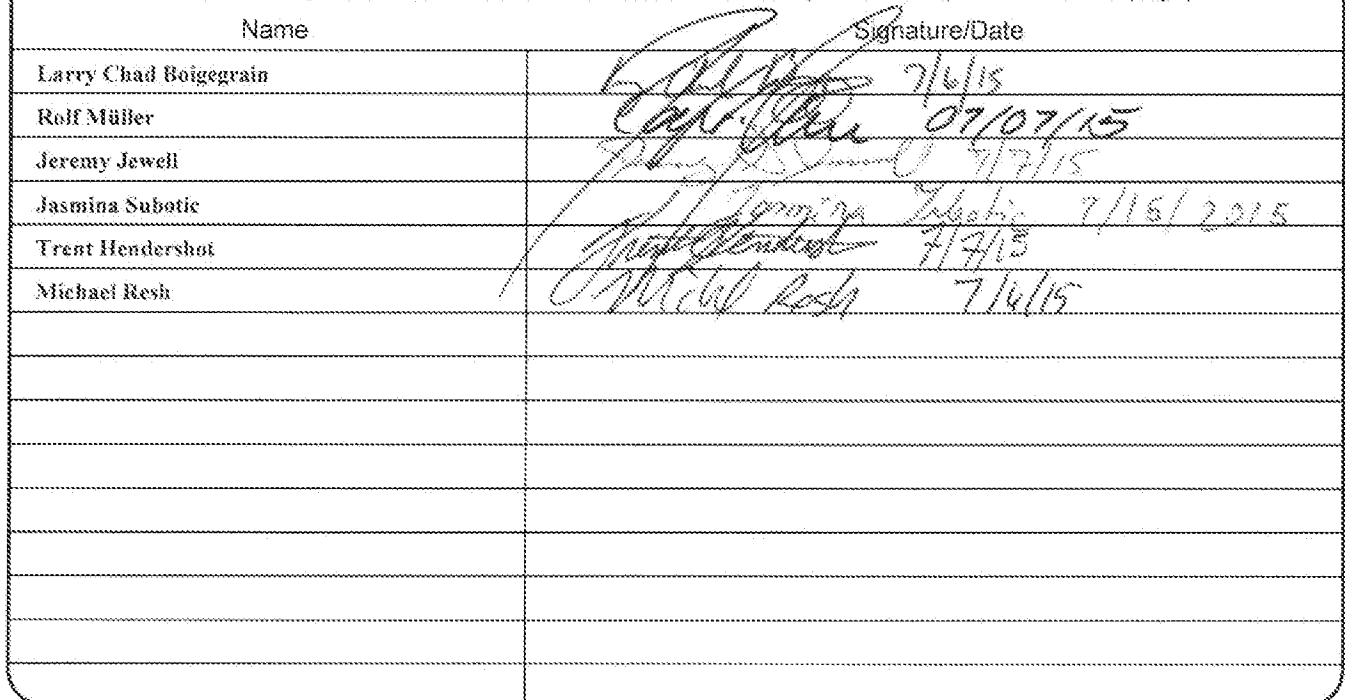 Name Signature/Date
Larry Chad Boigegrain 7/6/15
Rolf Müller 07/07/15
Jeremy Jewell 7/7/15
Jasmina Subotic Jasmina Subotic 7/15/2015
Trent Hendershot 7/7/15
Michael Resh 7/6/15